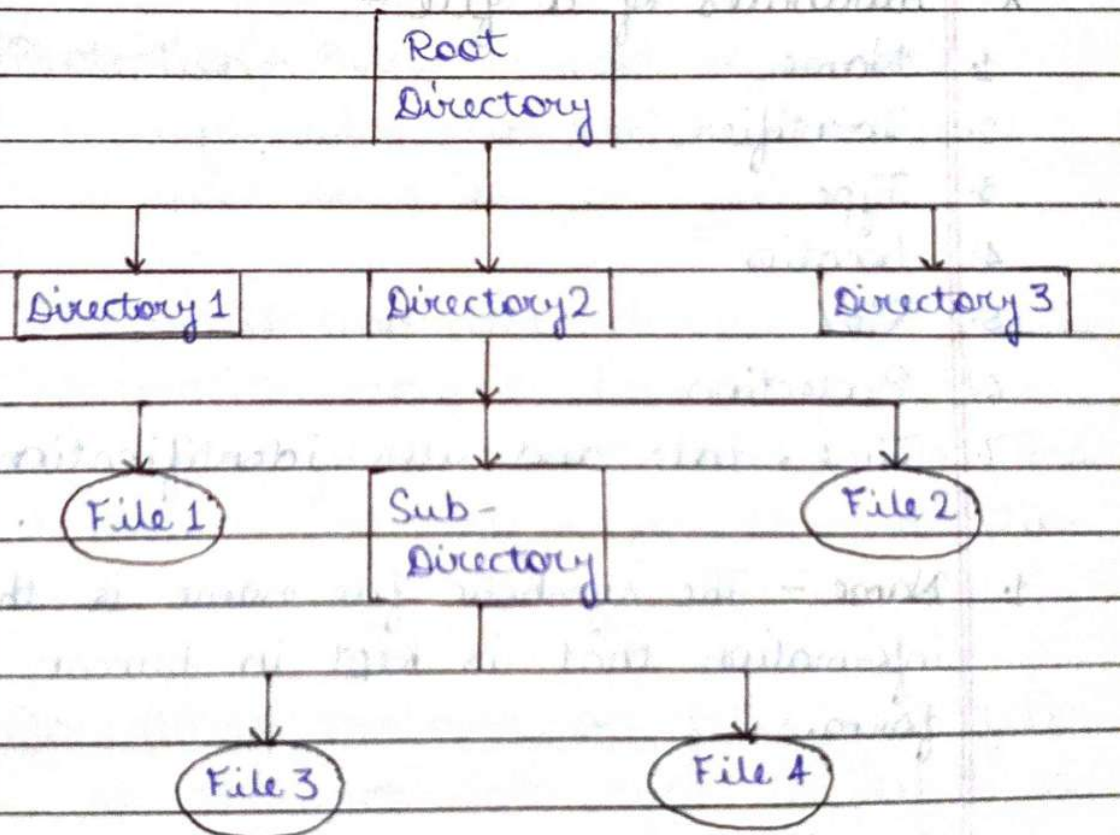 Root
Directory
Directory 1
Directory2
Directory 3
File 1
Sub-
Directory
File 2
File 3
File 4